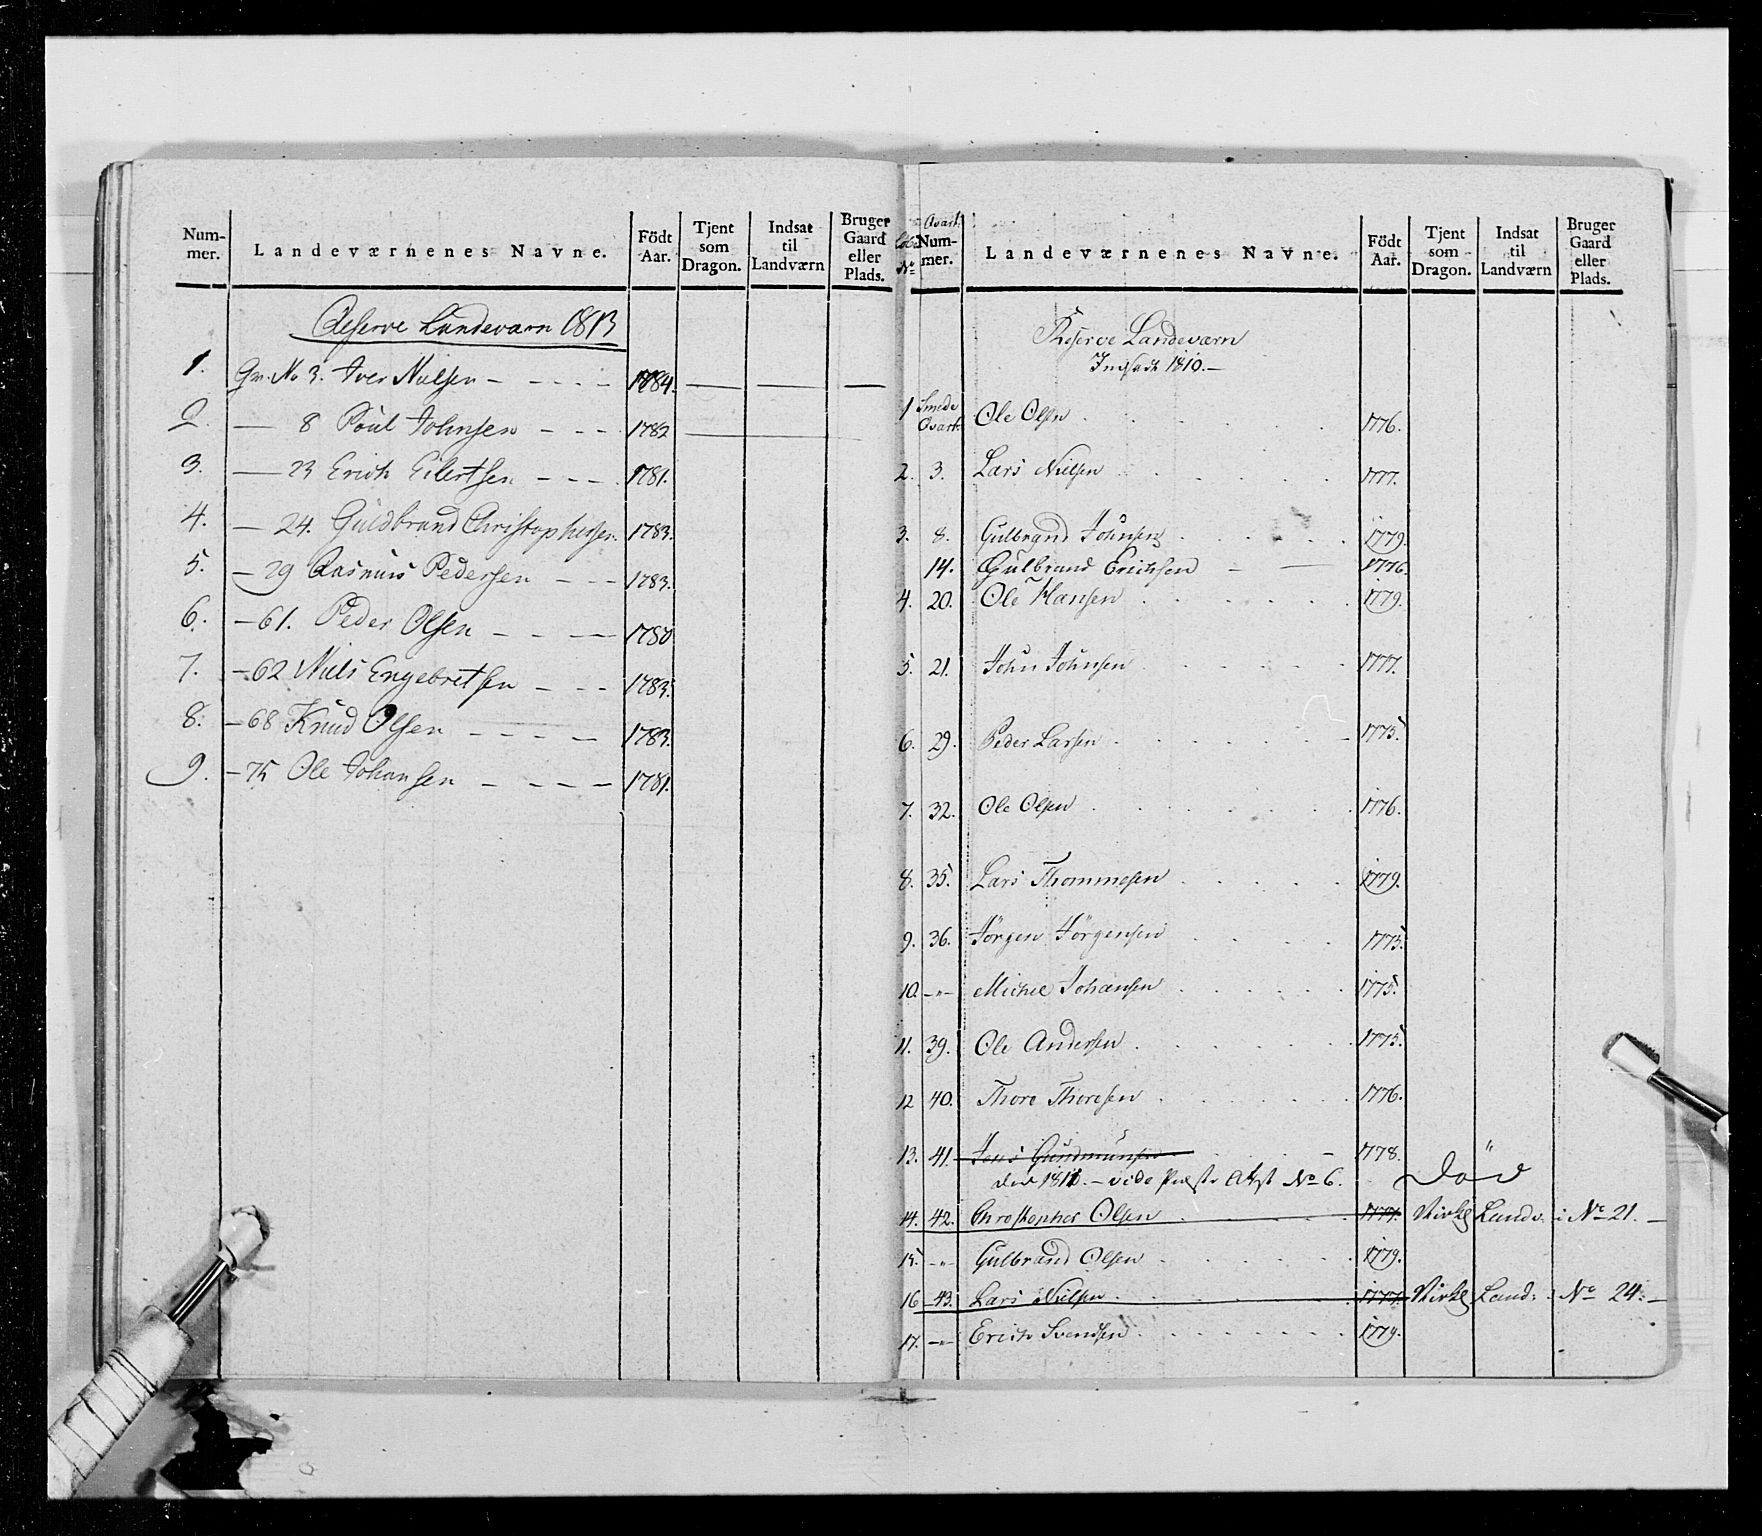 Num-mer. Landeværnenes Navne. Födt Aar. Tjent som Dragon. Indsat til Landværn Bruger Gaard eller Plads.
Reserve Landeværn 1813
1. Gv. No 3. Iver Nielsen 1784.
2. — 8 Poul Johnsen 1782
3. — 23 Erich Eilertsen 1781.
4. — 24. Guldbrand Christophersen 1783.
5. — 29 Rasmus Pedersen 1783.
6. — 61. Peder Olsen 1780
7. — 62 Niels Engebretsen 1783.
8. — 68 Knud Olsen 1783.
9. — 75 Ole Johansen 1781.
No Qvart. Num-mer. Landeværnenes Navne. Födt Aar. Tjent som Dragon. Indsat til Landværn Bruger Gaard eller Plads.
Reserve Landeværn
Indsadt 1810.—
1 Smede Qvart. Ole Olsen 1776.
2. 3. Lars Nielsen 1777.
3. 8. Gulbrand Johnsen 1779.
14. Gulbrand Erichsen 1776.
4. 20. Ole Hansen 1779.
5. 21. John Johnsen 1777.
6. 29. Peder Larsen 1775.
7. 32. Ole Olsen 1776.
8. 35. Lars Thommesen 1779.
9. 36. Jörgen Jörgensen 1775.
10. —"— Michel Johansen 1775.
11. 39. Ole Andersen 1775.
12 40. Thore Thoresen 1776.
13. 41. Jens Gudmunsen 1778. "
död 1811.— vide Præste Atst No 6. Död
14. 42. Christopher Olsen 1777. Virkel Landv. i No 21.—
15. —"— Gulbrand Olsen 1779.
16 43. Lars Nielsen 1777. Virkel Land: i No 24.—
17. —"— Erich Svendsen 1779.